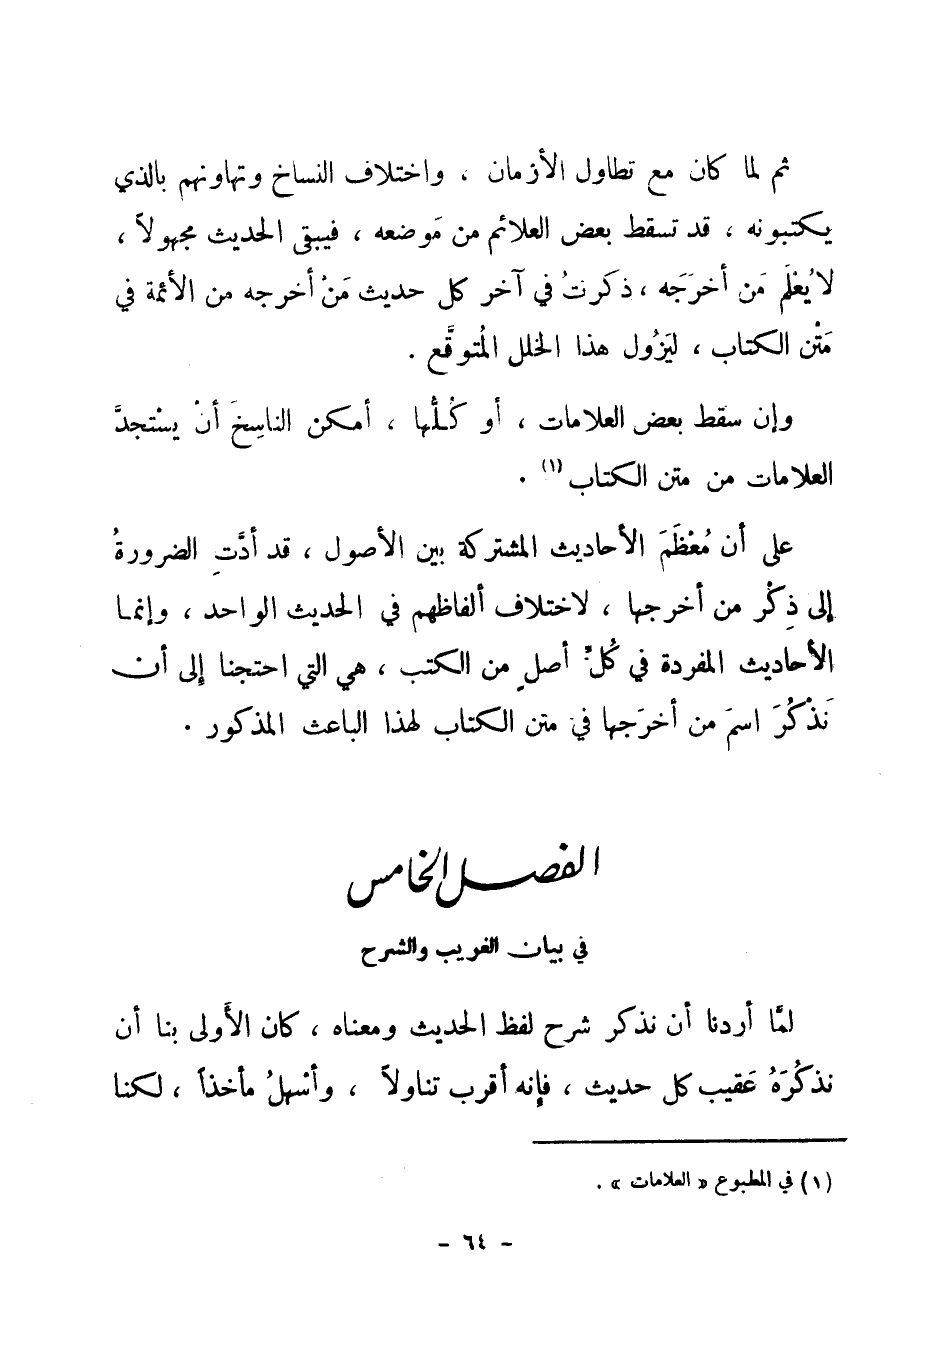 ثم لما كان مع تطاول الأزمان ، واختلاف النساخ وتهاونهم بالذي
يكتبونه ، قد تسقط بعض العلائم من مَوضعه ، فيبقى الحديث مجهولاً ،
لا يُعْلَم مَن أخرَجَه ، ذكرتُ في آخر كل حديث مَنْ أخرجه من الأئمة في
مَتْن الكتاب ، ليَزُول هذا الخلل المُتوقَّع .
وإن سقط بعض العلامات ، أو كُلُّها ، أمكن الناسِخَ أنْ يسْتجدَّ
العلامات من متن الكتاب (١) .
على أن مُعْظَمَ الأحاديث المشتركة بين الأصول ، قد أدَّتِ الضرورةُ
إلى ذِكْرِ من أخرجها ، لاختلاف ألفاظهم في الحديث الواحد ، وإنما
الأحاديث المفردة في كُلِّ أصلٍ من الكتب ، هي التي احتجنا إلى أن
نَذْكُرَ اسمَ من أخرَجها في متن الكتاب لهذا الباعث المذكور .
الفصل الخامس
في بيان الغريب والشرح
لمَّا أردنا أن نذكر شرح لفظ الحديث ومعناه ، كان الأَولى بنا أن
نذكُرَهُ عَقيب كل حديث ، فإنه أقرب تناولاً ، وأسْهلُ مأخذاً ، لكنا
(١) في المطبوع « العلامات » .
- ٦٤ -